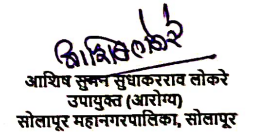 आशिष लोकरे
आशिष सुमन सुधाकरराव लोकरे
उपायुक्त (आरोग्य)
सोलापूर महानगरपालिका, सोलापूर